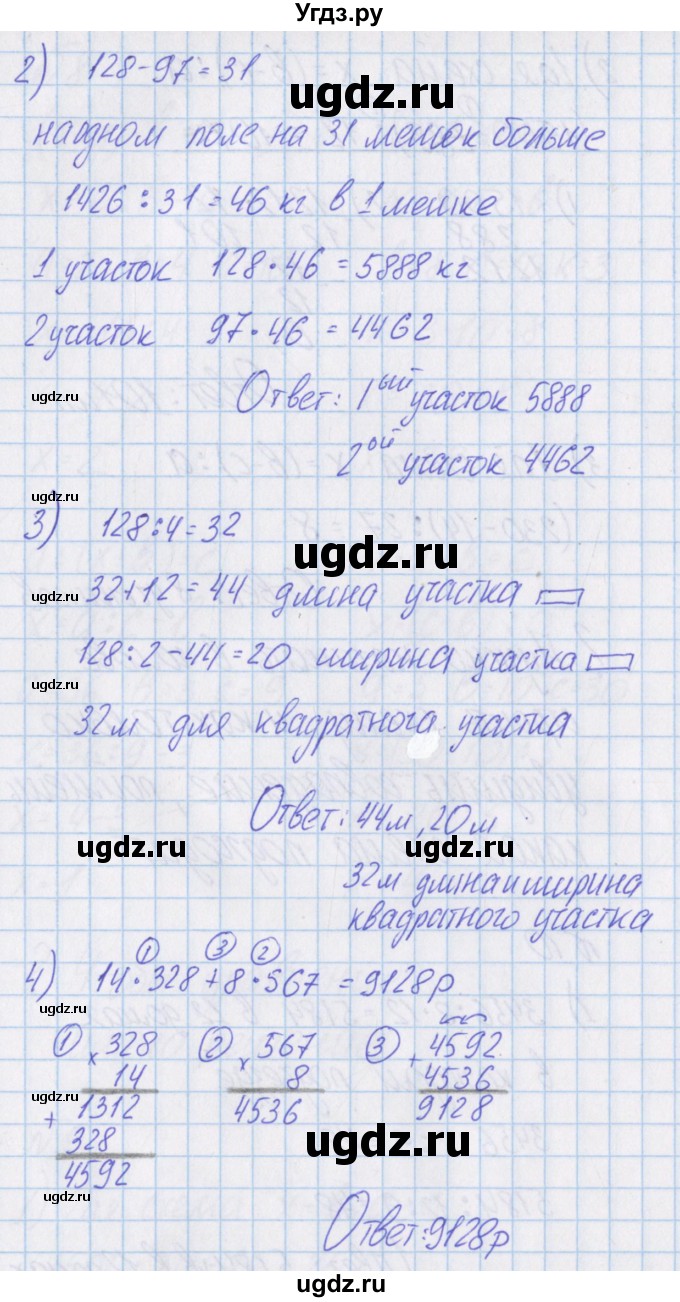 Угдз.ру
2) 128-97=31
ugdz.ru
на одном поле на 31 мешок больше
1426:31=46 кг в 1 мешке
1 участок 128·46=5888 кг
2 участок 97·46=4462
ugdz.ru
Ответ: 1ый участок 5888
2ой участок 4462
ugdz.ru
3) 128:4=32
ugdz.ru
ugdz.ru
32+12=44 длина участка
128:2-44=20 ширина участка
ugdz.ru
32м для квадратного участка
Ответ: 44м, 20м
ugdz.ru ugdz.ru
32м длина и ширина
квадратного участка
① ③ ②
4) 14·328+8·567=9128р
ugdz.ru
① ×328 ② ×567 ③ +4592
14 8 4536
+1312 4536 9128
328
ugdz.ru
4592
ugdz.ru
Ответ: 9128р
ugdz.ru